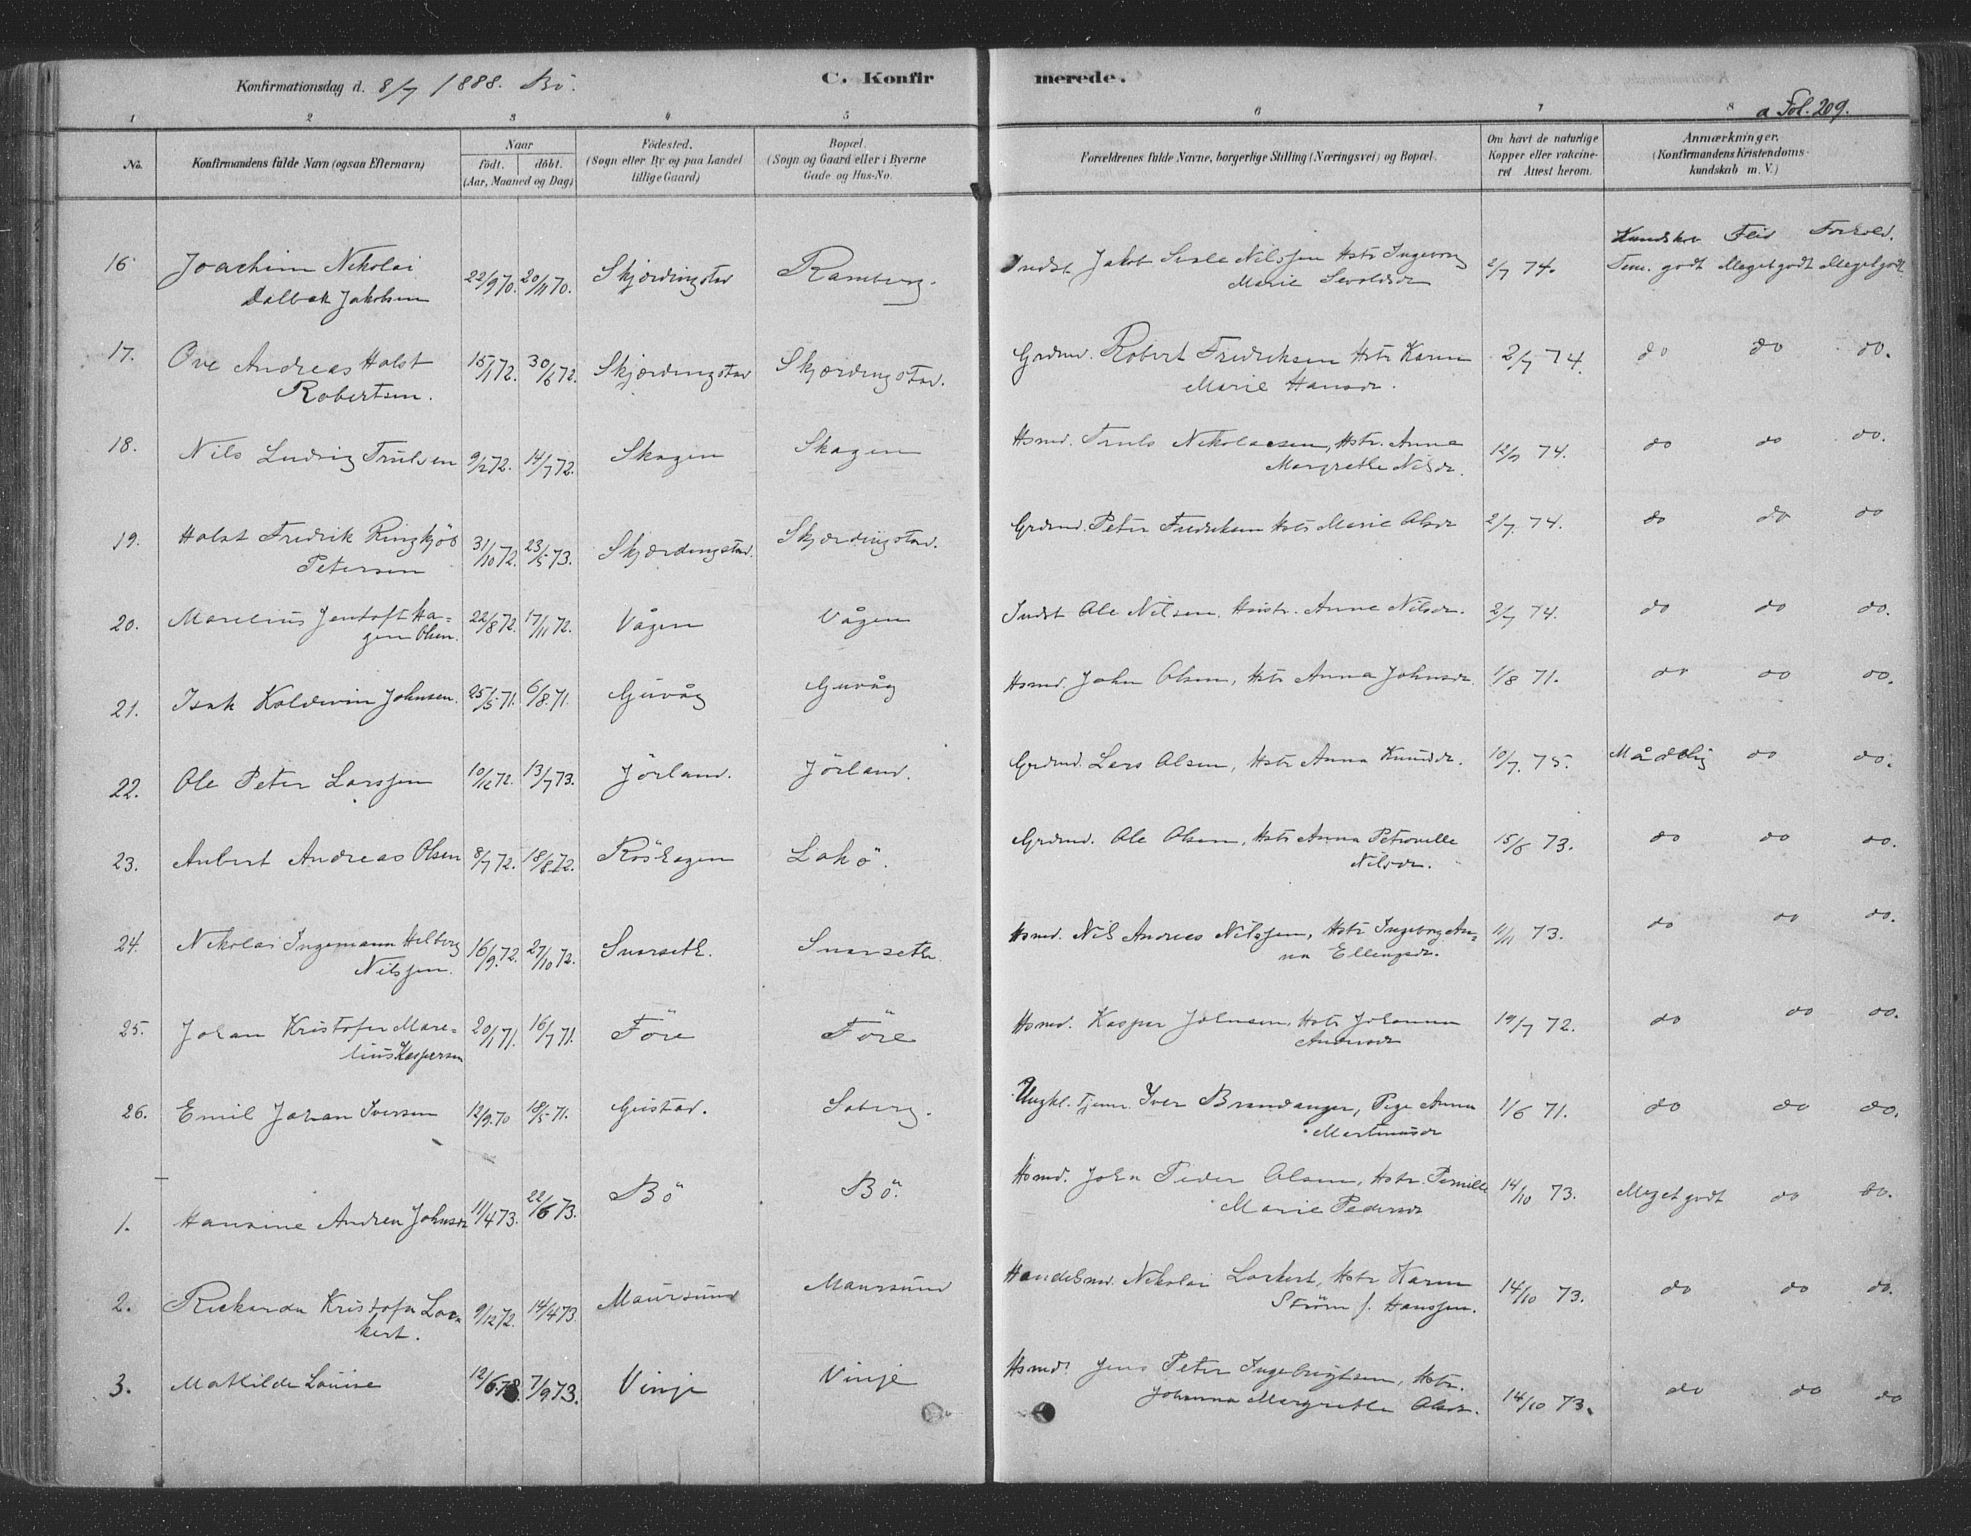 Konfirmationsdag d. 8/7 1888. Bö.
C. Konfirmerede.
a Fol. 209.
1 2 3 4 5 6 7 8
No.
Konfirmandens fulde Navn (ogsaa Efternavn)
Naar
født. døbt.
(Aar, Maaned og Dag)
Fødested.
(Sogn eller By og paa Landet
tillige Gaard)
Bopæl.
(Sogn og Gaard eller i Byerne
Gade og Hus-No.
Forældrenes fulde Navne, borgerlige Stilling (Næringsvei) og Bopæl.
Om havt de naturlige
Kopper eller vakcine-
ret Attest herom.
Anmærkninger.
(Konfirmandens Kristendoms-
kundskab m. V.)
Kundskab Flid Forhold.
16 Joachim Nikolai 22/9 70. 20/11 70. Skjærdingstad Ramberg. Indst Jakob Nilssen Hstr Ingeborg 2/7 74. Tem. godt Meget godt Meget godt
Dalbak Jakobsen Marie Sevoldsdr
17. Ove Andreas Holst 15/1 72. 30/6 72. Skjærdingstad Skjærdingstad. Grdmd. Robert Fredriksen Hstr Karen 2/7 74. do do do.
Robertsen. Marie Hansdr.
18. Nils Ludvig Trulsen 9/2 72. 14/7 72. Skagen Skagen Hsmd. Truls Nikolaesen, Hstr. Anna 12/7 74. do do do.
Margrethe Nilsdr.
19. Holst Fredrik Ringkjöb 31/10 72. 23/5 73. Skjærdingstad. Skjærdingstad. Grdmd. Peter Fredriksen Hstr Marie Olsdr 2/7 74. do do do
Petersen
20. Marelius Jentoft Ha- 22/8 72. 17/11 72. Vågen Vågen Indst Ole Nilsen, Hustr. Anne Nilsdr. 2/7 74. do do do.
gen Olsen.
21. Isak Koldevin Johnsen. 25/5 71. 6/8 71. Guvåg Guvåg Hsmd. John Olsen, Hstr Anna Johnsdr. 1/8 71. do do do.
22. Ole Peter Larssen 10/12 72. 13/7 73. Jörland. Jörland. Grdmd. Lars Olsen, Hstr Anna Knudsdr. 10/7. 75. Mådelig do do.
23. Anbert Andreas Olsen 8/7 72. 18/8 72. Röskagen Lakö. Grdmd. Ole Olsen, Hstr Anna Petronelle 15/6 73. do do do.
Nilsdr.
24. Nikolai Ingemann Helberg 16/9 72. 27/10 72. Svarseth. Svarseth. Hsmd. Nil Andreas Nilssen, Hstr Ingeborg An- 11/11 73. do do do.
Nilssen. na Ellingsdr.
25. Johan Kristofer Mare- 20/1 71. 16/7 71. Före Före Hsmd. Kasper Johnsen, Hstr Johanna 19/7 72. do do do.
lius Kaspersen Andersdr
26. Emil Johan Iversen 12/9 70 18/5 71. Gustad. Soberg. Ungkl. Tjener. Iver Brandanger, Pige Anna 1/6 71. do do do.
Martinusdr
1. Hansine Andrea Johnsdr 11/4 73. 22/6 73. Bö Bö. Hsmd. John Peder Olsen, Hstr. Pernille 14/10 73. Meget godt do do.
Marie Pedersdr
2. Rickarda Kristofa Loc- 9/12 72. 14/4 73. Maursund Maursund Handelsmd. Nikolai Lockert, Hstr Karen 14/10 73. do do do.
kert. Ström f. Hanssen.
3. Mathilde Louise 12/6 73. 7/9 73. Vinje Vinje Hsmd. Jens Peter Ingebrigtsen, Hstr. 14/10 73. do do do
Johanna Margrethe Olsdr.